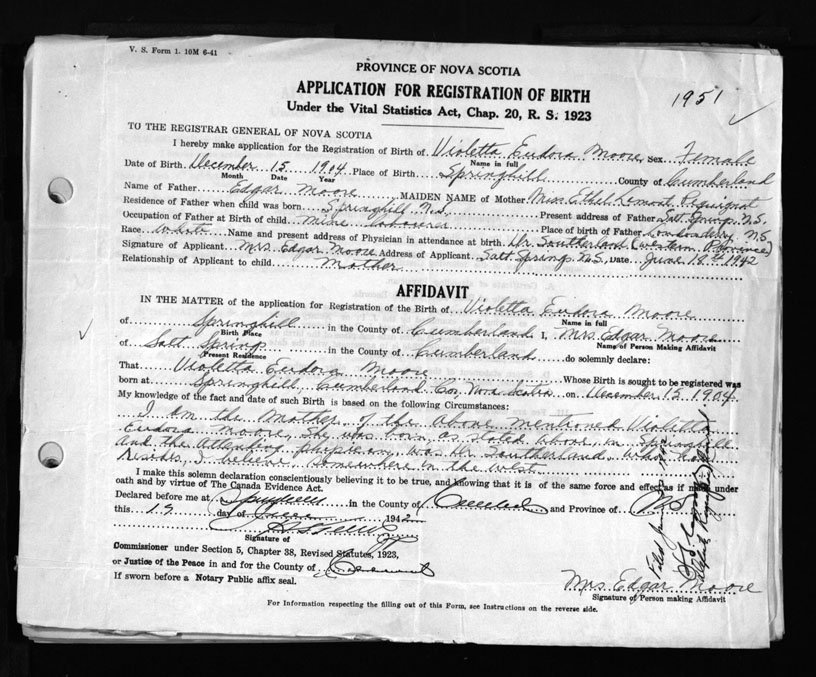 V. S. Form 1. 10M 6-41
PROVINCE OF NOVA SCOTIA
APPLICATION FOR REGISTRATION OF BIRTH
Under the Vital Statistics Act, Chap. 20, R. S. 1923
1951
TO THE REGISTRAR GENERAL OF NOVA SCOTIA
I hereby make application for the Registration of Birth of Violetta Eudora Moore Sex Female
Name in full
Date of Birth December 15 1904 Place of Birth Springhill County of Cumberland
Month Date Year
Name of Father Edgar Moore MAIDEN NAME of Mother Miss Ethel Remont Pequignot
Residence of Father when child was born Springhill N.S. Present address of Father Salt Springs N.S.
Occupation of Father at Birth of child mine labourer Place of birth of Father Londonderry N.S.
Race white Name and present address of Physician in attendance at birth Dr Southerland (western Province)
Signature of Applicant Mrs. Edgar Moore Address of Applicant Salt Spring N.S. Date June 12th 1942
Relationship of Applicant to child Mother
AFFIDAVIT
IN THE MATTER of the application for Registration of the Birth of Violetta Eudora Moore
Name in full
of Springhill in the County of Cumberland I, Mrs Edgar Moore
Birth Place Name of Person Making Affidavit
of Salt Spring in the County of Cumberland do solemnly declare:
Present Residence
That Violetta Eudora Moore Whose Birth is sought to be registered was
born at Springhill, Cumberland Co, Nova Scotia on December 15 1904
My knowledge of the fact and date of such Birth is based on the following Circumstances:
I am the Mother of the above mentioned Violetta
Eudora Moore, She was born, as stated above, in Springhill
and the attending physician, was Dr Southerland, who now
resides, I believe, somewhere in the west
I make this solemn declaration conscientiously believing it to be true, and knowing that it is of the same force and effect as if made under
oath and by virtue of The Canada Evidence Act.
Declared before me at Springhill in the County of Cumberland and Province of N.S.
this 12 day of June 1942
Signature of
Commissioner under Section 5, Chapter 38, Revised Statutes, 1923,
or Justice of the Peace in and for the County of
If sworn before a Notary Public affix seal.
Mrs Edgar Moore
Signature of Person making Affidavit
For Information respecting the filling out of this Form, see Instructions on the reverse side.